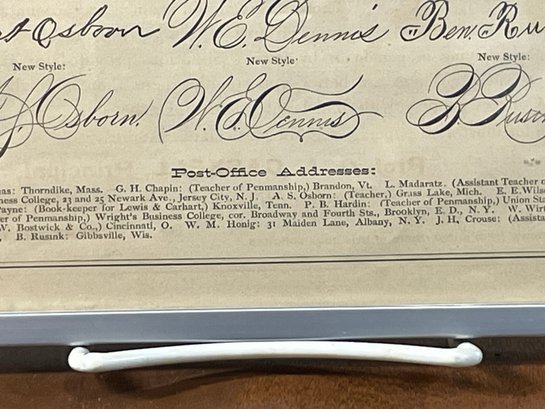 Osborn W. E. Dennis Ben. Ru
New Style: New Style: New Style:
Osborn. W. E. Dennis B Rusin
Post-Office Addresses:
nas: Thorndike, Mass. G. H. Chapin: (Teacher of Penmanship,) Brandon, Vt. L. Madaratz. (Assistant Teacher o
ness College, 23 and 25 Newark Ave., Jersey City, N. J. A. S. Osborn: (Teacher,) Grass Lake, Mich. E. E. Wils
Payne: (Book-keeper for Lewis & Carhart,) Knoxville, Tenn. P. B. Hardin: (Teacher of Penmanship,) Union Sta
er of Penmanship,) Wright's Business College, cor. Broadway and Fourth Sts., Brooklyn, E. D., N. Y. W. Wirt
W. Bostwick & Co.,) Cincinnati, O. W. M. Honig: 31 Maiden Lane, Albany, N. Y. J. H. Crouse: (Assista
B. Rusink: Gibbsville, Wis.